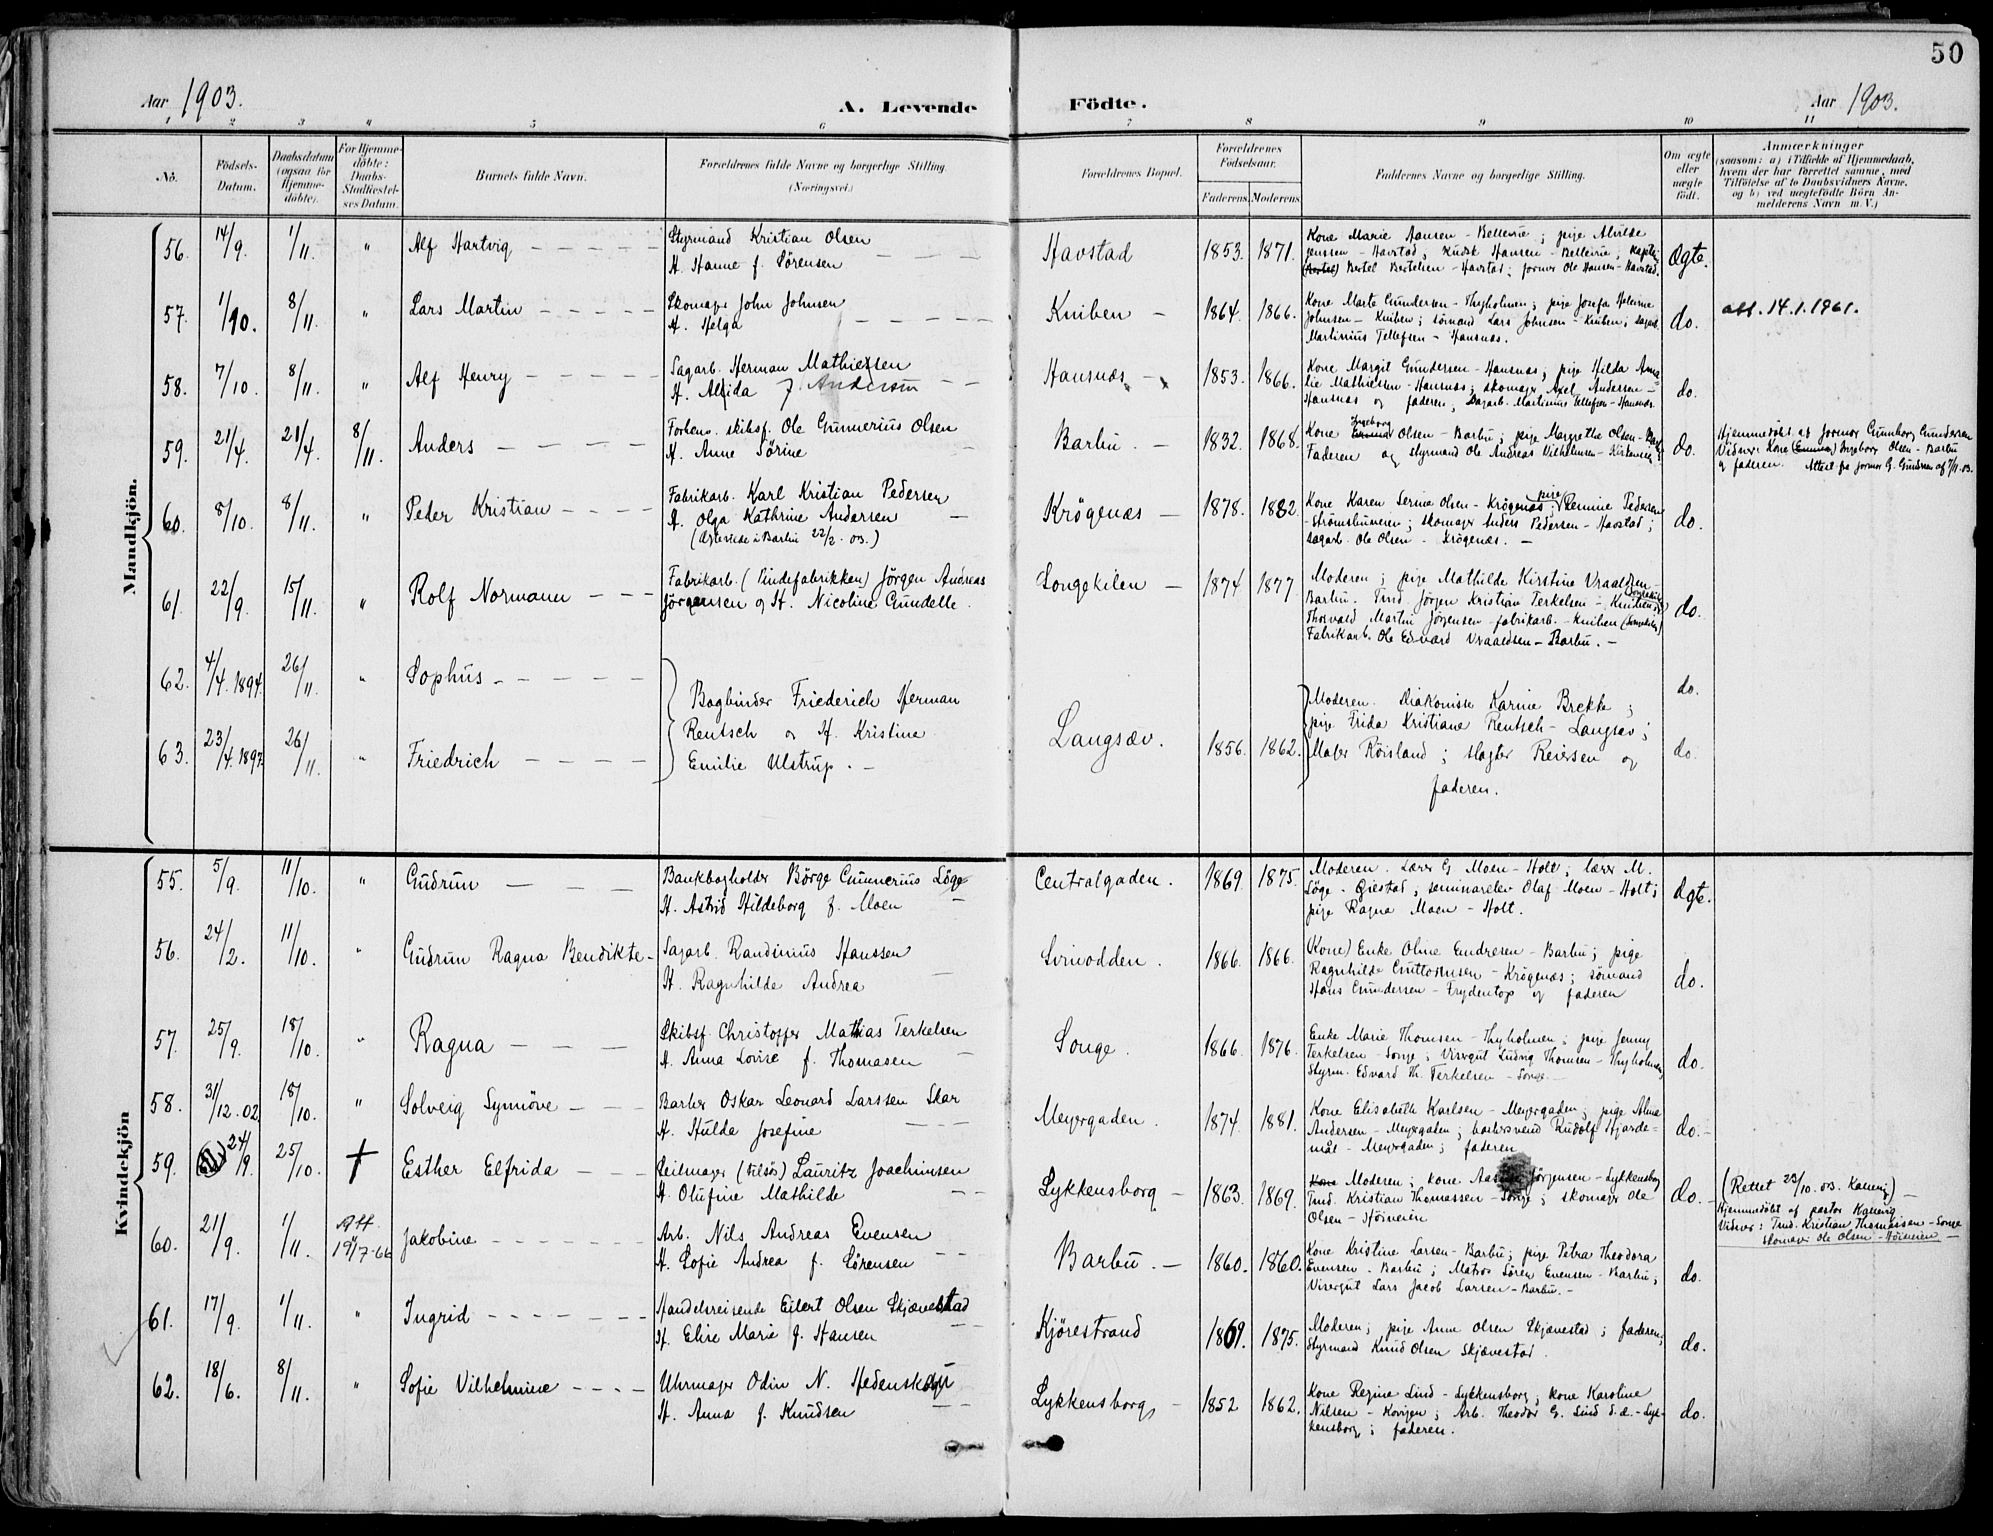 50
Aar 1903.
A. Levende Födte.
Aar 1903.
1 2 3 4 5 6 7 8 9 10 11
No.
Födsels-Datum.
Daabsdatum (ogsaa for Hjemmedöbte).
For Hjemmedöbte: Daabs-Stadfæstelses Datum.
Barnets fulde Navn.
Forældrenes fulde Navne og borgerlige Stilling. (Næringsvei.)
Forældrenes Bopæl.
Forældrenes Födselsaar.
Faderens. Moderens
Faddernes Navne og borgerlige Stilling.
Om ægte eller uægte födt.
Anmærkninger
(saasom: a) i Tilfælde af Hjemmedaab, hvem der har forrettet samme, med Tilföielse af to Daabsvidners Navne, og b) ved uægtefödte Börn Anmelderens Navn m. V.)
Mandkjön.
56. 14/9. 1/11. " Alf Hartvig
Styrmand Kristian Olsen
H. Hanne f. Sörensen
Havstad 1853. 1871.
Kone Marie Hansen - Bellevue; pige Alvilde
Jenssen - Havstad; Kudsk Hansen - Bellevue;
Bertel Bertelsen - Havstad; former Ole Hansen - Havstad.
Ægte.
57. 1/90. 8/11. " Lars Martin
Skomager John Johnsen
H. Helga
Kniben - 1864. 1866.
Kone Marte Gundersen - Thyholmen; pige Josefa
Johnsen - Kniben; sömand Lars Johnsen - Kniben; sagarb.
Martinius Tellefsen - Hansnæs.
do. att. 14.1.1961.
58. 7/10. 8/11. " Alf Henry
Sagarb. Herman Mathiesen
H. Alfida f. Andersen
Hansnæs - 1853. 1866.
Kone Margit Gundersen - Hansnæs; pige Hilda Ama-
lie Mathiesen - Hansnæs; skomager Axel Andersen -
Hansnæs og faderen; Sagarb. Martinius Tellefsen - Hansnæs.
do.
59. 21/4. 21/4. 8/11. Anders
Forhenv. skibsf. Ole Gunnerius Olsen
H. Anne Sörine
Barbu. - 1832. 1868.
Kone Ingeborg Olsen - Barbu; pige Margrethe Olsen -
Faderen og styrmand Ole Andreas Vilhelmsen -
do.
Hjemmedöbt af formor Gunborg Gundersen
Vidner: Kone (Emma) Ingeborg Olsen - Barbu
og faderen. Attest fra formor G. Gundersen af 7/11.03.
60. 8/10. 8/11. " Peder Kristian
Fabrikarb. Karl Kristian Pedersen
H. Olga Kathrine Andersen
(Ægteviede i Barbu 22/2. 03.)
Krøgenæs - 1878. 1882.
Kone Karen Serine Olsen - Krøgenæs; pige Pedersen
- Strømsbuneien; skomager Anders Pedersen - Havstad;
sagarb. Ole Olsen - Krögenæs. -
do.
61. 22/9. 15/11. " Rolf Normann
Fabrikarb. (Pindefabrikken) Jörgen Andreas
Jörgensen og H. Nicoline Gundelle.
Songekilen - 1874 1877
Moderen; pige Mathilde Kirstine Vraaldsen -
Barbu. Tmd. Jörgen Kristian Terkelsen - Kniben
Thorvald Martin Jörgensen - fabrikarb. - Kniben
Fabrikarb. Ole Edvard Vraaldsen - Barbu. -
do.
62. 4/4. 1894. 26/11. " Sophus
63. 23/4. 1897. 26/11. " Friedrich
Bogbinder Friederich Herman
Rentsch og H. Kristine
Emilie Ulstrup. -
Langsæv. 1856. 1862.
Moderen. Diakonisse Karine Brekke;
pige Frida Kristiane Rentsch - Langsæv;
Maler Röisland; slagter Reiersen og
faderen.
do.
do.
Kvindekjön
55. 5/9. 11/10. " Gudrun
Bankbogholder Börge Gunnerius Löge
H. Astrid Hildeborg f. Moen
Centralgaden. 1869. 1875.
Moderen. Lærer G. Moen - Holt; lærer M.
Löge - Öiestad; seminarelev Olaf Moen - Holt;
pige Ragna Moen - Holt.
Ægte.
56. 24/2. 11/10. " Gudrun Ragna Bendikte
Sagarb. Randinius Hanssen
H. Ragnhilde Andrea
Svinodden. 1866. 1866.
(Kone) Enke Oline Endresen - Barbu; pige
Ragnhilde Guttormsen - Krögenæs; sömand
Hans Gundersen - Frydentop og faderen
do.
57. 25/9. 18/10. " Ragna
Skibsf. Christoffer Mathias Terkelsen
H. Anna Lovise f. Thomasen
Songe. 1866. 1876.
Enke Marie Thomsen - Thyholmen; pige Jenny
Terkelsen - Songe; Visergut Ludvig Thomsen - Thyholmen,
Styrm. Edvard Th. Terkelsen - Songe. -
do.
58. 31/12.02. 18/10. " Solveig Synnöve
Barber Oskar Leonard Larssen Skar
H. Hulda Josefine
Meyergaden. 1874. 1881.
Kone Elisabeth Karlsen - Meyergaden; pige Alma
Andersen - Meyergaden; barbersvend Rudolf Hjarde-
mål - Meyergaden; faderen
do. -
59. 24/9. 25/10. † Esther Elfrida
Seilmager Lauritz Joachimsen
H. Olufine Mathilde
Lykkensborg - 1863. 1869.
Moderen; kone Jörgensen - Lykkensborg
Tmd. Kristian Thomassen - Songe; skomager Ole
Olsen - Höineien
do. -
(Rettet 23/10. 03. Kallevig)
Hjemmedöbt af pastor Kallevig
Vidner: Tmd. Kristian Thomassen - Songe
skomager Ole Olsen - Höineien -
60. 21/9. 1/11. Att. 19/7-66 Jakobine
Arb. Nils Andreas Evensen
H. Sofie Andrea f. Sörensen
Barbu. - 1860. 1860.
Kone Kristine Larsen - Barbu; pige Petra Theodora
Evensen - Barbu; Matros Sören Evensen - Barbu;
Visergut Lars Jacob Larsen - Barbu. -
do.
61. 17/9. 1/11. " Ingrid
Handelsreisende Eilert Olsen Skjævestad
H. Elise Marie f. Hansen
Kjörestrand 1869. 1875.
Moderen; pige Anne Olsen Skjævestad; faderen;
Styrmand Knud Olsen Skjævestad.
do.
62. 18/6. 8/11. " Sofie Vilhelmine
Uhrmager Odin N. Hedenskoug
H. Anna f. Knudsen
Lykkensborg - 1852 1862.
Kone Regine Lind - Lykkensborg; kone Karoline
Nilsen - Kovigen; Arb. Theodor G. Lind s.æ. - Lyk-
kensborg; faderen.
do.